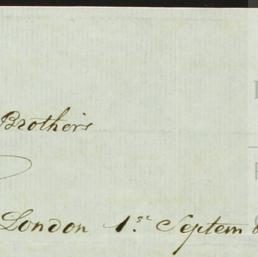 Brother's
London 1.st Septem